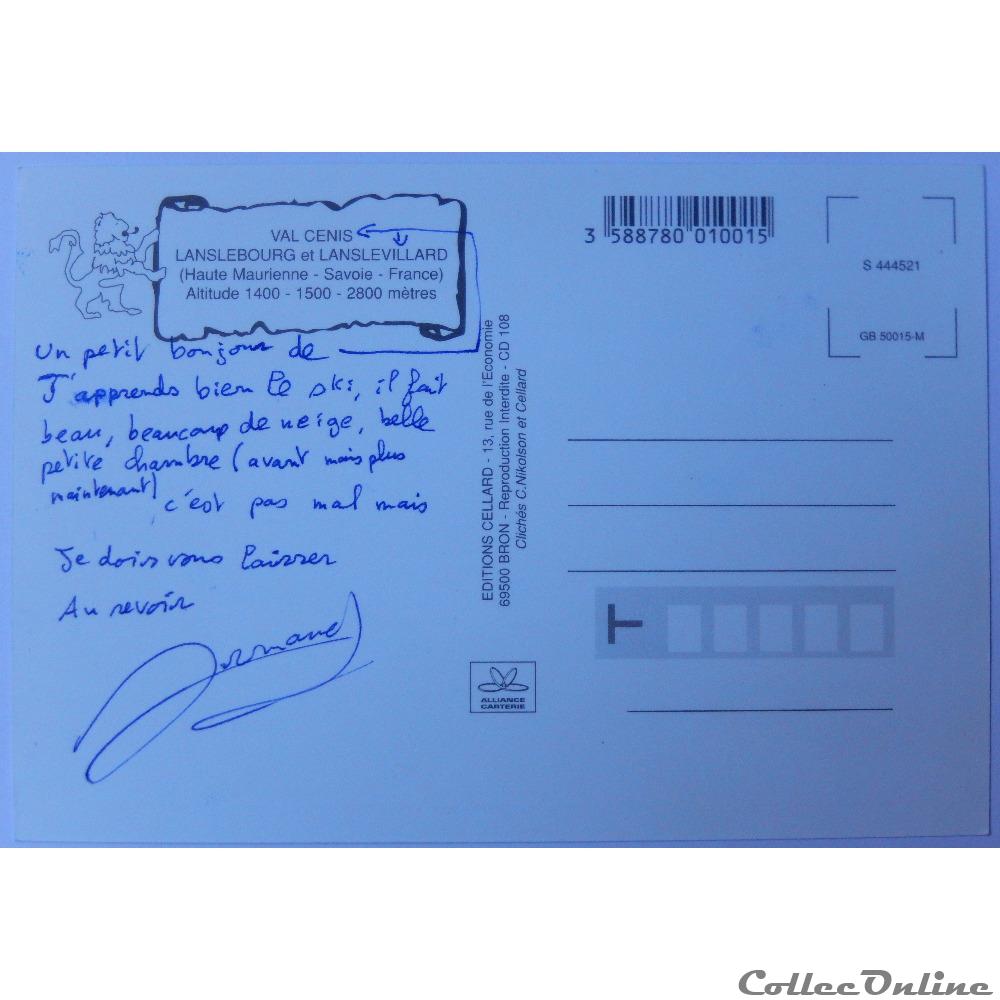 VAL CENIS
LANSLEBOURG et LANSLEVILLARD
(Haute Maurienne - Savoie - France)
Altitude 1400 - 1500 - 2800 mètres
Un petit bonjour de
J'apprends bien le ski, il fait
beau, beaucoup de neige, belle
petite chambre (avant mais plus
maintenant) c'est pas mal mais
Je dois vous laisser
Au revoir
EDITIONS CELLARD - 13, rue de l'Economie
69500 BRON - Reproduction Interdite - CD 108
Clichés C.Nikolson et Cellard
ALLIANCE
CARTERIE
3 588780 010015
S 444521
GB 50015-M
T
CollecOnline